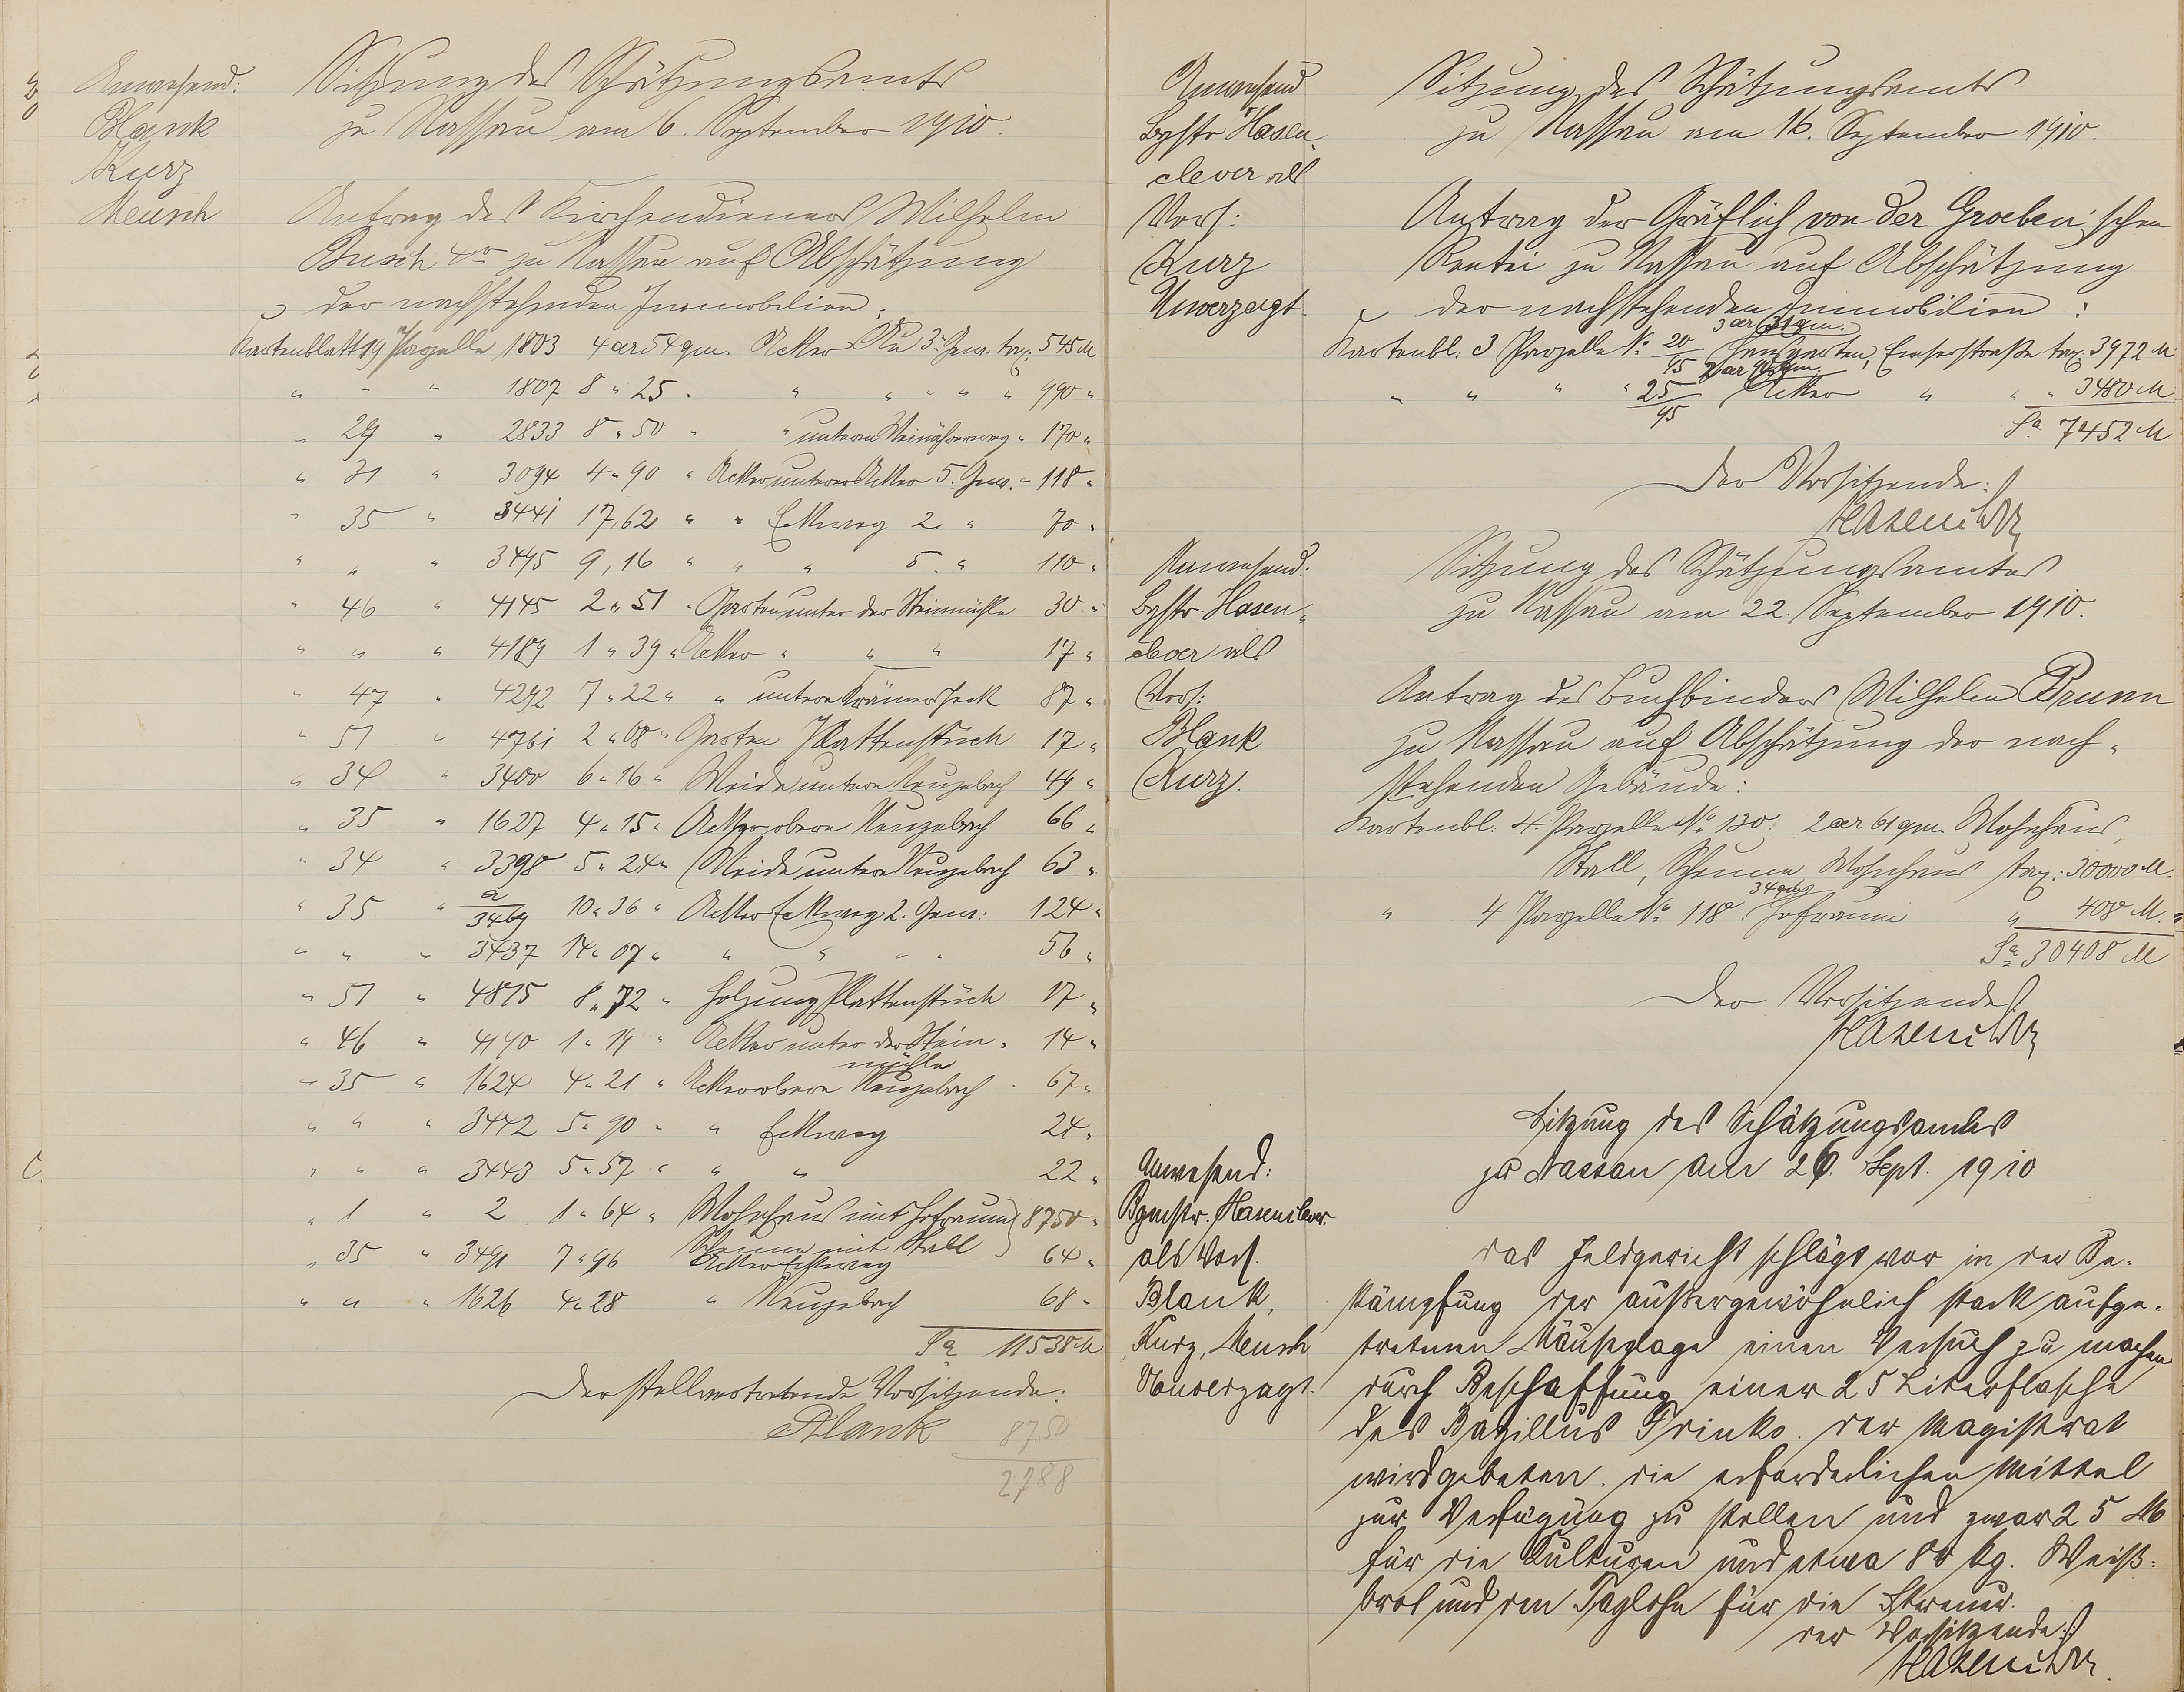 Anwesend:
Blank
Kurz
Meusch
Sitzung des Schätzungsamts
zu Nassau am 6. September 1910.
Antrag des Kirchendieners Wilhelm
Busch 4r zu Nassau auf Abschätzung
der nachstehenden Immobilien:
Kartenblatt 19 Parzelle 1803 4 ar 54 qm. Acker Au 3. Gew. tax. 545 M
" " " 1807 8 " 25 " " " " " " 990 "
" 29 " 2833 8 " 50 " " unterm Weinährerweg " 170 "
" 31 " 3094 4 " 90 " Acker unterer Acker 5. Gew. " 118 "
" 35 " 3441 17,62 " " Eckweg 2. " 70 "
" " " 3495 9,16 " " " 5. " 110 "
" 46 " 4145 2 " 51 " Garten unter der Steinmühle 30 "
" " " 4189 1 " 39 " Acker " " " 17 "
" 47 " 4292 7 " 22 " " unterm Krämersheck 87 "
" 51 " 4761 2 " 08 " Garten Plattenstück 17 "
" 34 " 3400 6 " 16 " Weide untere Neuzebach 49 "
" 35 " 1627 4 " 15 " Acker obere Neuzebach 66 "
" 34 " 3398 5 " 24 " Weide untere Neuzebach 63 "
" 35 " a/3469 10 " 36 " Acker Eckweg 2. Gew: 124 "
" " " 3437 14 " 07 " " " " " 56 "
" 51 " 4815 8 " 72 " Holzung Plattenstück 17 "
" 46 " 4190 1 " 14 " Acker unter der Stein- 14 "
mühle
" 35 " 1624 4 " 21 " Acker obere Neuzebach " 67 "
" " " 3442 5 " 90 " " Eckweg 24 "
" " " 3443 5 " 57 " " " 22 "
" 1 " 2 1 " 64 " Wohnhaus mit Hofraum 8750 "
Scheune mit Stall
" 35 " 3491 7 " 96 Acker Eckweg 64 "
" " " 1626 4 " 28 " Neuzebach 68 "
Sa 11538 M
Der stellvertretende Vorsitzende:
Blank
8750
2788
Anwesend
Bgstr Hasen-
clever als
Vors:
Kurz
Unverzagt
Sitzung des Schätzungsamts
zu Nassau am 16. September 1910.
Antrag der Gräflich von der Groeben'schen
Rentei zu Nassau auf Abschätzung
der nachstehenden Immobilien:
3 ar 31 qm.
Kartenbl: 3. Parzelle No 20/95 Hausgarten, Emserstraße tax. 3972 M
2 ar qm.
" " " " 25/95 Acker " " " 3480 M
Sa 7452 M
Der Vorsitzende:
Hasenclever
Anwesend:
Bgstr Hasen-
clever als
Vors:
Blank
Kurz.
Sitzung des Schätzungsamtes
zu Nassau am 22. September 1910.
Antrag des Buchbinders Wilhelm Brunn
zu Nassau auf Abschätzung der nach-
stehenden Gebäude:
Kartenbl: 4. Parzelle No 130: 2 ar 61 qm. Wohnhaus,
Stall, Scheune, Wohnhaus tax: 30000 M.
34 qm
" 4 Parzelle No 118. Hofraum " 408 M.
Sa 30408 M
Der Vorsitzende:
Hasenclever
Anwesend:
Bgmstr. Hasenclever
als Vors.
Blank,
Kurz, Meusch
Unverzagt.
Sitzung des Schätzungsamtes
zu Nassau am 26. Sept. 1910
Das Feldgericht schlägt vor in der Be-
kämpfung der außergewöhnlich stark aufge-
tretenen Mäuseplage einen Versuch zu machen
durch Beschaffung einer 25 Literflasche
des Bazillus Trinks. Der Magistrat
wird gebeten die erforderlichen Mittel
zur Verfügung zu stellen und zwar 25 M
für die Kulturen und etwa 80 kg. Weiß-
brot und den Taglohn für die Streuer.
Der Vorsitzende:
Hasenclever.